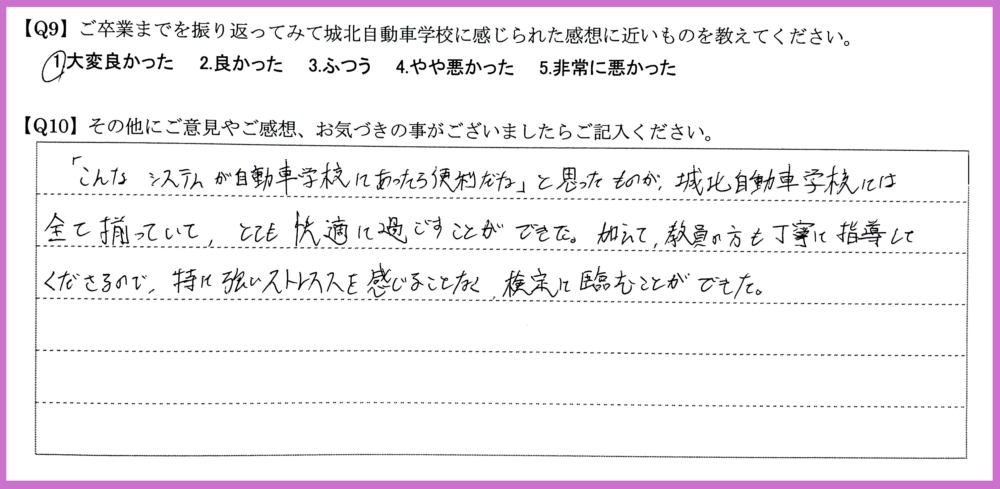 【Q9】ご卒業までを振り返ってみて城北自動車学校に感じられた感想に近いものを教えてください。
1.大変良かった 2.良かった 3.ふつう 4.やや悪かった 5.非常に悪かった
【Q10】その他にご意見やご感想、お気づきの事がございましたらご記入ください。
「こんな システムが自動車学校にあったら便利だな」と思ったものが、城北自動車学校には
全て揃っていて、とても快適に過ごすことができた。加えて、教員の方も丁寧に指導して
くださるので、特に強いストレスを感じることなく、検定に臨むことができた。